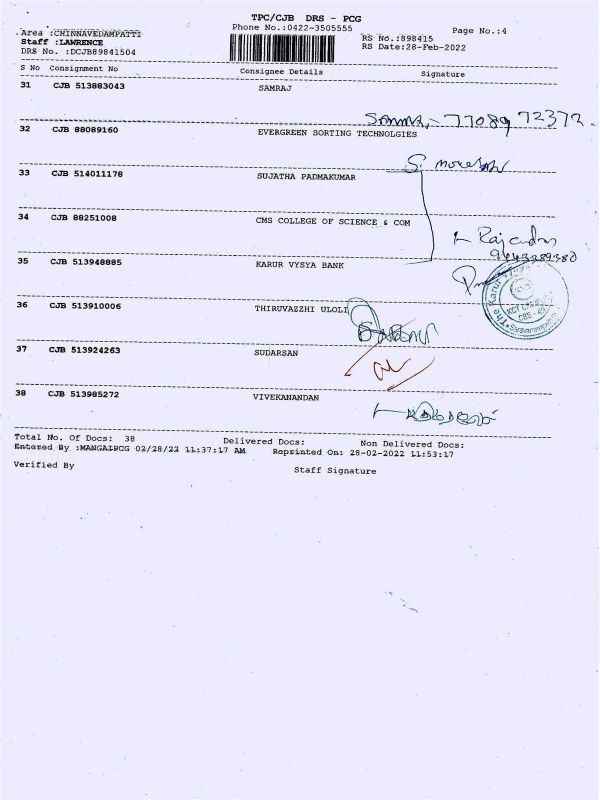 TPC/CJB DRS - PCG
Phone No.:0422-3505555
Page No.:4
Area :CHINNAVEDAMPATTI
Staff :LAWRENCE
DRS No. :DCJB89841504
RS No.:898415
RS Date:28-Feb-2022
S No Consignment No Consignee Details Signature
31 CJB 513883043 SAMRAJ
77089 72372
32 CJB 88089160 EVERGREEN SORTING TECHNOLGIES
33 CJB 514011178 SUJATHA PADMAKUMAR
34 CJB 88251008 CMS COLLEGE OF SCIENCE & COM
35 CJB 513948885 KARUR VYSYA BANK
36 CJB 513910006 THIRUVAZZHI ULOLI
37 CJB 513924263 SUDARSAN
38 CJB 513985272 VIVEKANANDAN
Total No. Of Docs: 38 Delivered Docs: Non Delivered Docs:
Entered By :MANGAIPCG 02/28/22 11:37:17 AM Reprinted On: 28-02-2022 11:53:17
Verified By Staff Signature